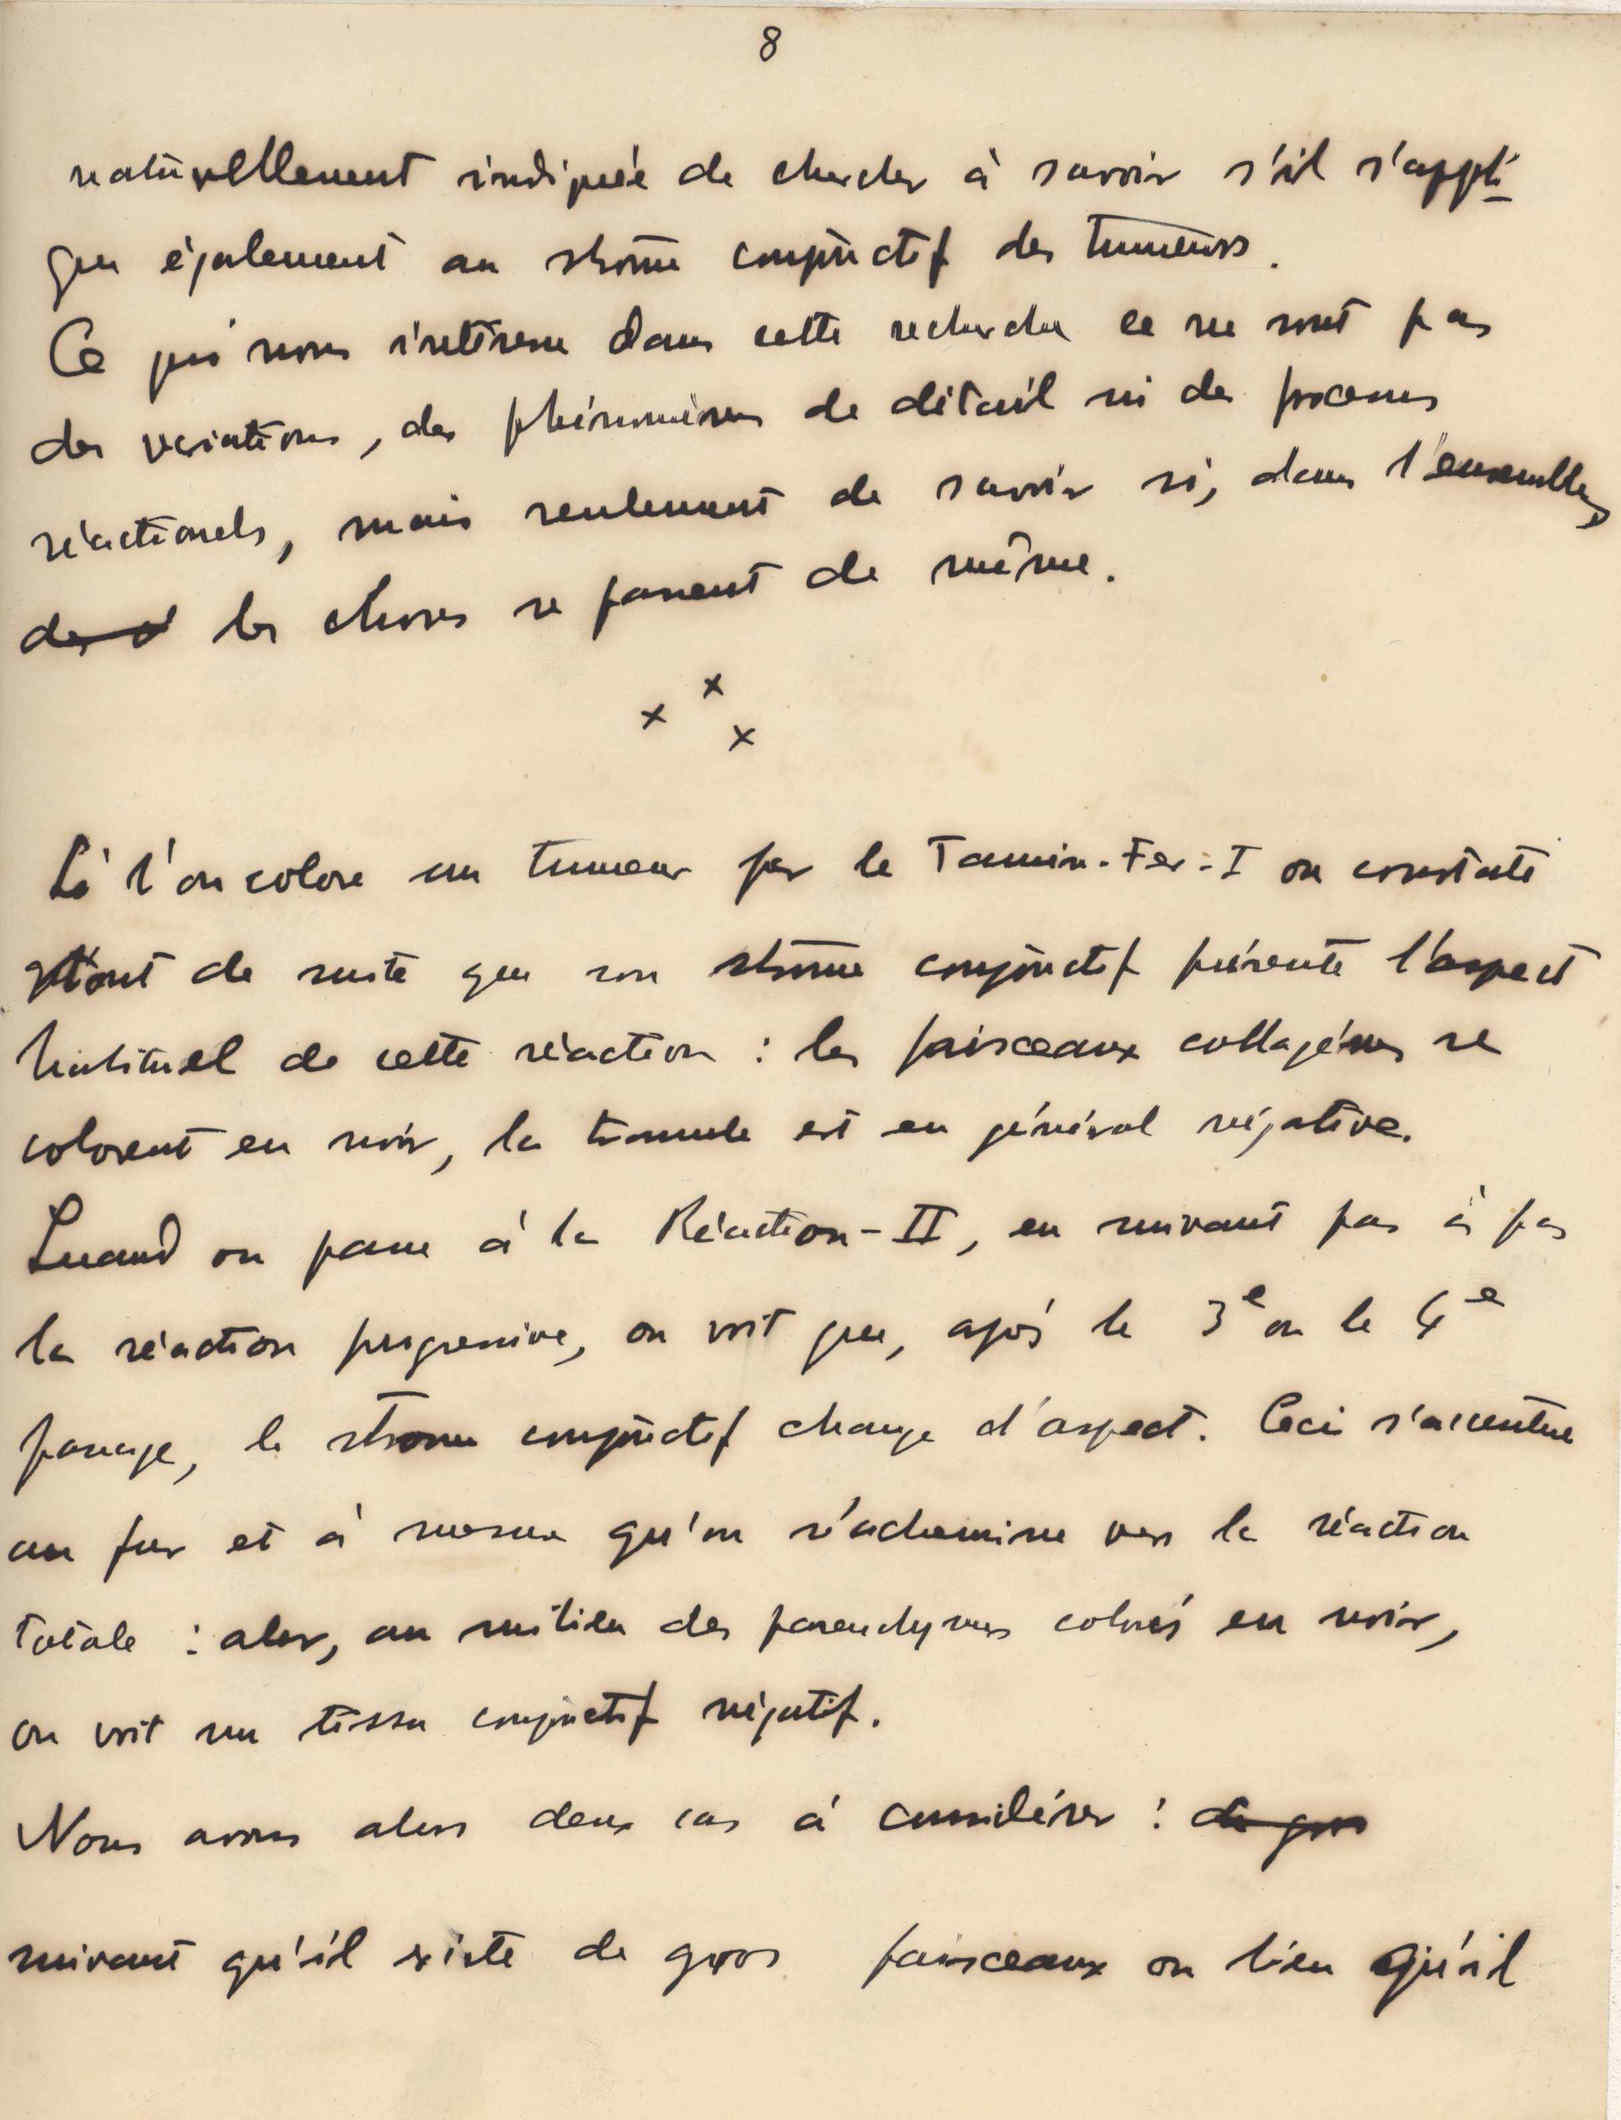 8
naturellement indiquée de chercher à savoir s'il s'appli-
que également au stroma conjonctif des tumeurs.
Ce qui nous intéresse dans cette recherche ce ne sont pas
des variations, des phénomènes de détail ni des processus
réactionels, mais seulement de savoir si, dans l'ensemble,
les choses se passent de même.
x x x
Si l'on colore un tumeur par le Tannin-Fer-I on constate
tout de suite que son stroma conjonctif présente l'aspect
habituel de cette réaction : les faisceaux collagènes se
colorent en noir, la trame est en général négative.
Quand on passe à la Réaction-II, en suivant pas à pas
la réaction progressive, on voit que, après le 3e ou le 4e
passage, le stroma conjonctif change d'aspect. Ceci s'accentue
au fur et à mesure qu'on s'achemine vers la réaction
totale : alors, au milieu des parenchymes colorés en noir,
on voit un tissu conjonctif négatif.
Nous avons alors deux cas à considérer : de gros
suivant qu'il existe de gros faisceaux ou bien qu'il